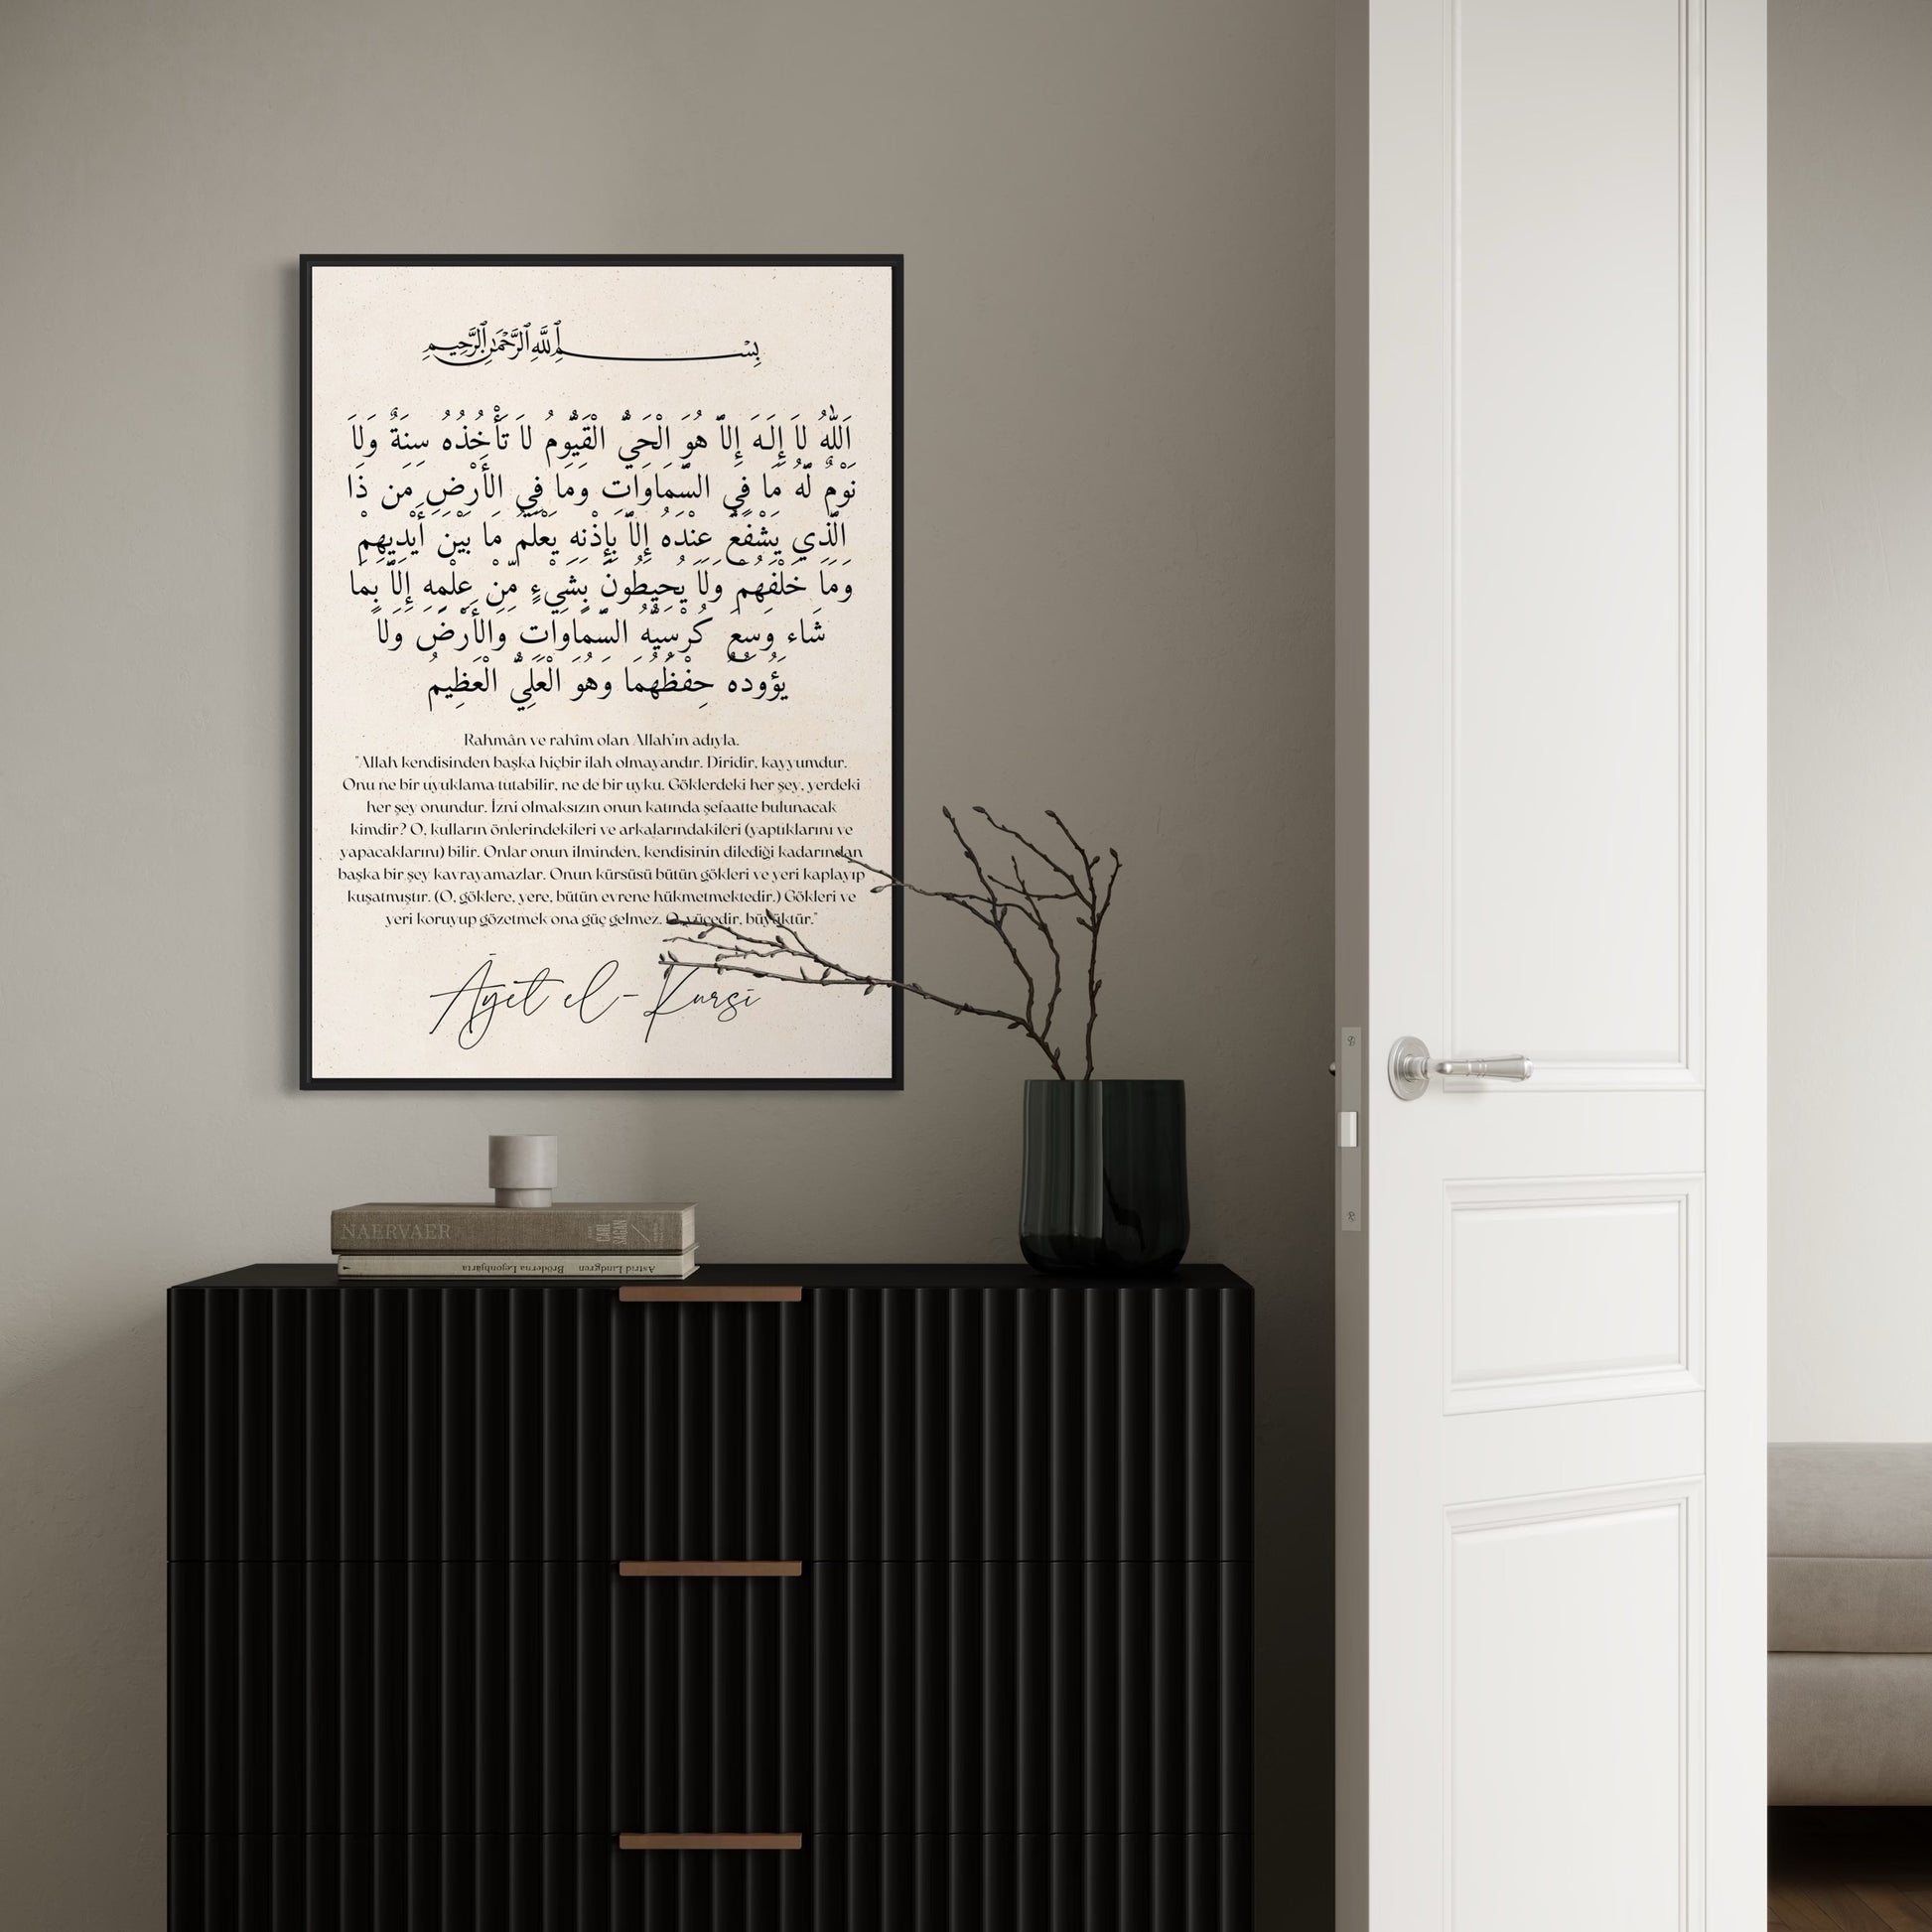 بِسْمِ اللَّهِ الرَّحْمَٰنِ الرَّحِيمِ
اَللّٰهُ لاَ إِلَـهَ إِلاَّ هُوَ الْحَيُّ الْقَيُّومُ لاَ تَأْخُذُهُ سِنَةٌ وَلاَ
نَوْمٌ لَّهُ مَا فِي السَّمَاوَاتِ وَمَا فِي الأَرْضِ مَن ذَا
الَّذِي يَشْفَعُ عِنْدَهُ إِلاَّ بِإِذْنِهِ يَعْلَمُ مَا بَيْنَ أَيْدِيهِمْ
وَمَا خَلْفَهُمْ وَلاَ يُحِيطُونَ بِشَيْءٍ مِّنْ عِلْمِهِ إِلاَّ بِمَا
شَاء وَسِعَ كُرْسِيُّهُ السَّمَاوَاتِ وَالأَرْضَ وَلاَ
يَؤُودُهُ حِفْظُهُمَا وَهُوَ الْعَلِيُّ الْعَظِيمُ
Rahmân ve rahîm olan Allah'ın adıyla.
"Allah kendisinden başka hiçbir ilah olmayandır. Diridir, kayyumdur.
Onu ne bir uyuklama tutabilir, ne de bir uyku. Göklerdeki her şey, yerdeki
her şey onundur. İzni olmaksızın onun katında şefaatte bulunacak
kimdir? O, kulların önlerindekileri ve arkalarındakileri (yaptıklarını ve
yapacaklarını) bilir. Onlar onun ilminden, kendisinin dilediği kadarından
başka bir şey kavrayamazlar. Onun kürsüsü bütün gökleri ve yeri kaplayıp
kuşatmıştır. (O, göklere, yere, bütün evrene hükmetmektedir.) Gökleri ve
yeri koruyup gözetmek ona güç gelmez. O, yücedir, büyüktür."
Âyet el-Kursi
NAERVAER CARL SAGAN
Astrid Lindgren Bröderna Lejonhjärta